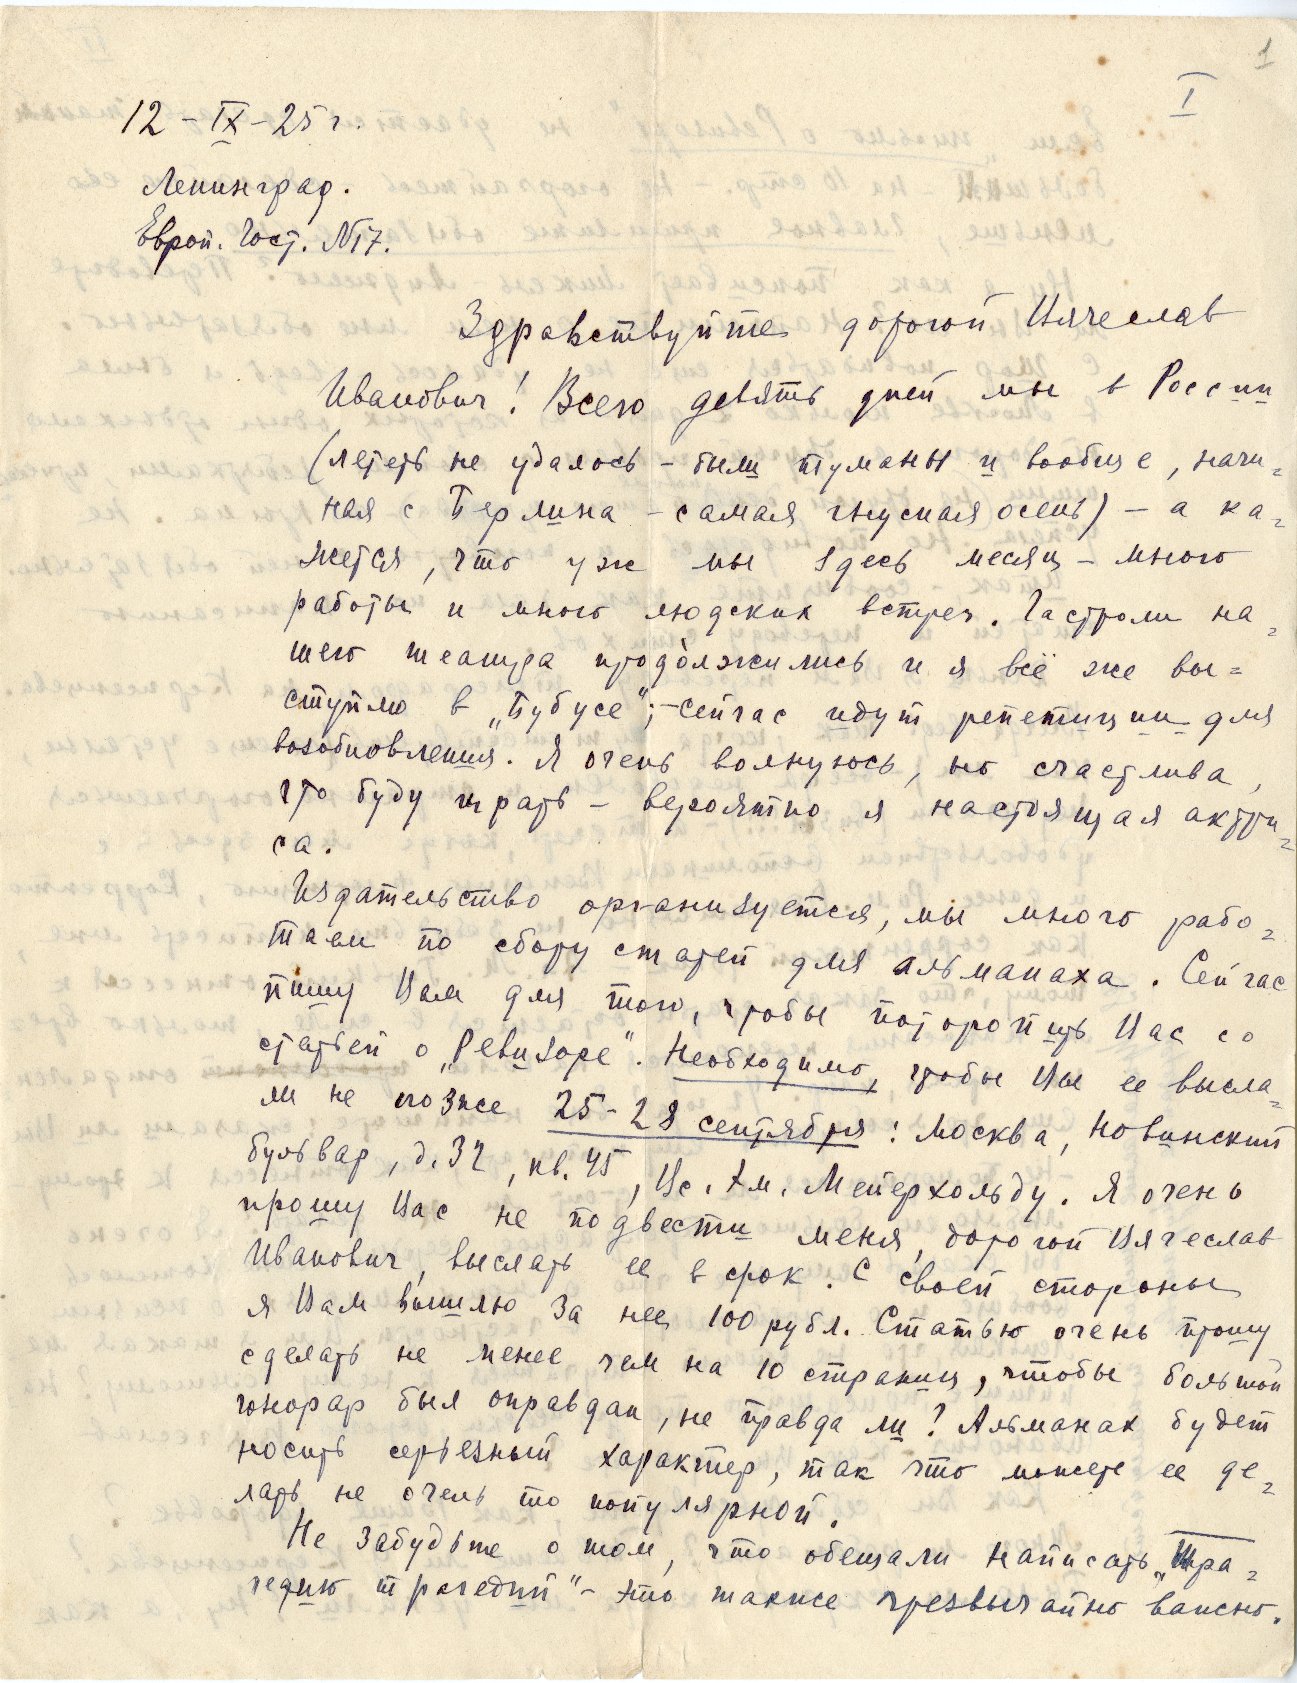 1
I
12 – IX – 25 г.
Ленинград.
Европ. Гост. №17.
Здравствуйте дорогой Вячеслав
Иванович! Всего девять дней мы в России
(лететь не удалось – были туманы и вообще, начи=
ная с Берлина – самая гнусная осень) – а ка=
жется, что уж мы здесь месяц – много
работы и много людских встреч. Гастроли на=
шего театра продолжились и я всё же вы=
ступлю в „Бубусе“; – сейчас идут репетиции для
возобновления. Я очень волнуюсь, но счастлива,
что буду играть – вероятно я настоящая актри=
са.
Издательство организуется, мы много рабо=
таем по сбору статей для альманаха. Сейчас
пишу Вам для того, чтобы поторопить Вас со
статьей о „Ревизоре“. Необходимо, чтобы Вы ее высла=
ли не позже 25–28 сентября: Москва, Новинский
бульвар, д. 32, кв. 45, Вс. Эм. Мейерхольду. Я очень
прошу Вас не подвести меня, дорогой Вячеслав
Иванович, выслать ее в срок. С своей стороны
я Вам вышлю за нее 100 рубл. Статью очень прошу
сделать не менее чем на 10 страниц, чтобы большой
гонорар был оправдан, не правда ли? Альманах будет
носить серьезный характер, так что можете ее де=
лать не очень то популярной.
Не забудьте о том, что обещали написать „Тра=
гедию трагедий“ – это также чрезвычайно важно.